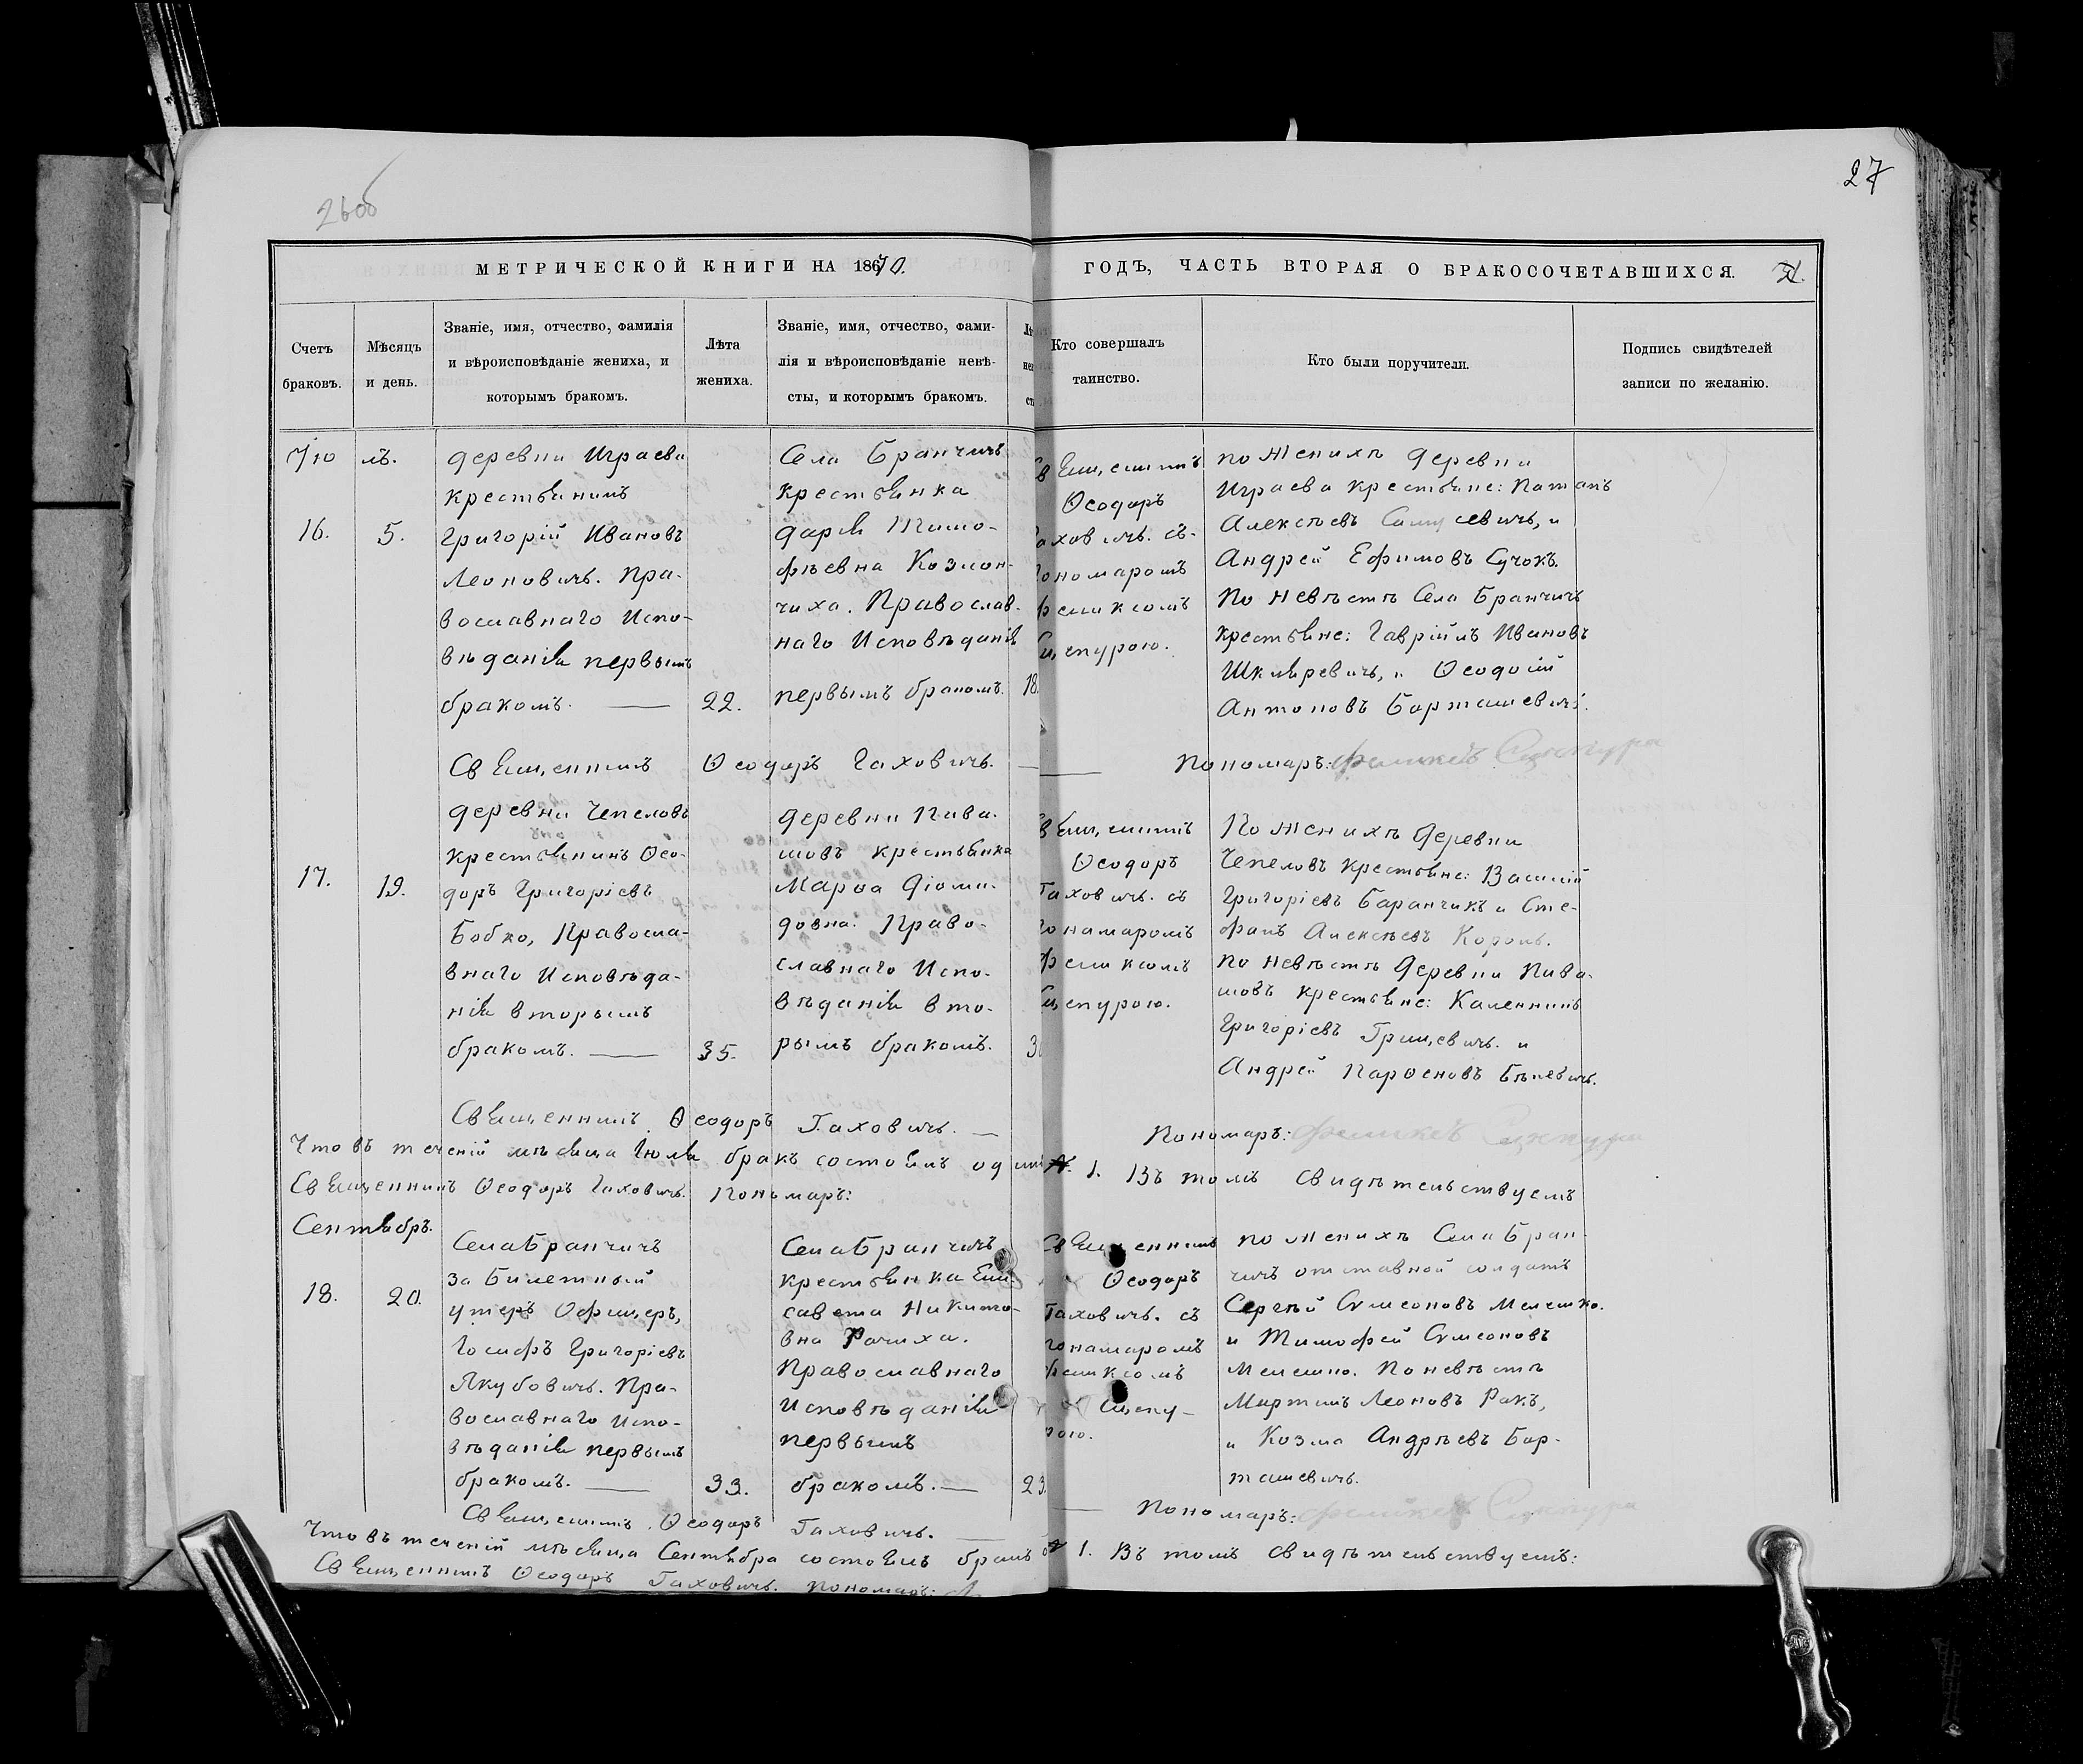 27
26об
МЕТРИЧЕСКОЙ КНИГИ НА 1870.
ГОДЪ, ЧАСТЬ ВТОРАЯ О БРАКОСОЧЕТАВШИХСЯ.
Счетъ
браковъ.
Мѣсяцъ
и день.
Званіе, имя, отчество, фамилія
и вѣроисповѣданіе жениха, и
которымъ бракомъ.
Лѣта
жениха.
Званіе, имя, отчество, фами-
лія и вѣроисповѣданіе невѣ-
сты, и которымъ бракомъ.
Кто совершалъ
таинство.
Кто были поручители.
Подпись свидѣтелей
записи по желанію.
16.
5.
деревни Играева
крестьянинъ
Григорій Ивановъ
Леоновичъ. Пра-
вославнаго Испо-
вѣданія первымъ
бракомъ.
22.
Села Бранчичъ
крестьянка
Дарія Тимо-
фѣевна
Православ-
наго Исповѣданія
первымъ бракомъ.
18.
Священникъ
Ѳеодоръ
Гаховичъ. съ
Пономаромъ
Феликсомъ
Сцепурою.
по Женихѣ деревни
Играева крестьяне:
Алексѣевъ и
Андрей Ефимовъ Сучокъ.
По Невѣстѣ Села Бранчичъ
крестьяне: Гавріилъ Ивановъ
Шкляревичъ, и Ѳеодосій
Антоновъ Барташевичъ.
Священникъ Ѳеодоръ Гаховичъ.
Пономаръ: Феликсъ Сцепура
17.
19.
деревни Чепеловъ
крестьянинъ Ѳео-
доръ Григоріевъ
Бобко, Правосла-
внаго Исповѣда-
нія вторымъ
бракомъ.
35.
деревни Пива-
шовъ крестьянка
Марѳа Діоми-
довна. Право-
славнаго Испо-
вѣданія вто-
рымъ бракомъ.
Священникъ
Ѳеодоръ
Гаховичъ. съ
Понамаромъ
Феликсомъ
Сцепурою.
По Женихѣ деревни
Чепеловъ крестьяне: Василій
Григоріевъ Баранчикъ и Сте-
фанъ Алексѣевъ Король.
по Невѣстѣ деревни Пива-
шовъ крестьяне: Каленникъ
Григоріевъ Грицевичъ. и
Андрей Парѳеновъ
Священникъ Ѳеодоръ Гаховичъ.
Пономаръ: Феликсъ Сцепура
Что въ теченій мѣсяца Іюля бракъ состоялъ одинъ № 1. Въ томъ свидѣтельствуемъ
Священникъ Ѳеодоръ Гаховичъ. Пономаръ:
Сентябрь.
18.
20.
Села Бранчичъ
За Билетный
унтеръ Офицеръ,
Іосифъ Григоріевъ
Якубовичъ. Пра-
вославнаго Испо-
вѣданія первымъ
бракомъ.
33.
Села Бранчичъ
крестьянка Ели-
савета Никито-
вна Рачиха.
Православнаго
Исповѣданія
первымъ
бракомъ.
23.
Священникъ
Ѳеодоръ
Гаховичъ. съ
понамаромъ
Феликсомъ
Сцепу-
рою.
по женихѣ Села Бран-
чичъ отставной солдатъ
Сергѣй Сѵмеоновъ Мелешко.
и Тимофей Сѵмеоновъ
Мелешко. По невѣстѣ
Мартинъ Леоновъ Ракъ,
и Козма Андрѣевъ Бар-
ташевичъ.
Священникъ Ѳеодоръ Гаховичъ.
Пономаръ: Феликсъ Сцепура
Что въ теченій мѣсяца Сентября состоялъ бракъ 1. Въ томъ свидѣтельствуемъ:
Священникъ Ѳеодоръ Гаховичъ. Пономаръ: